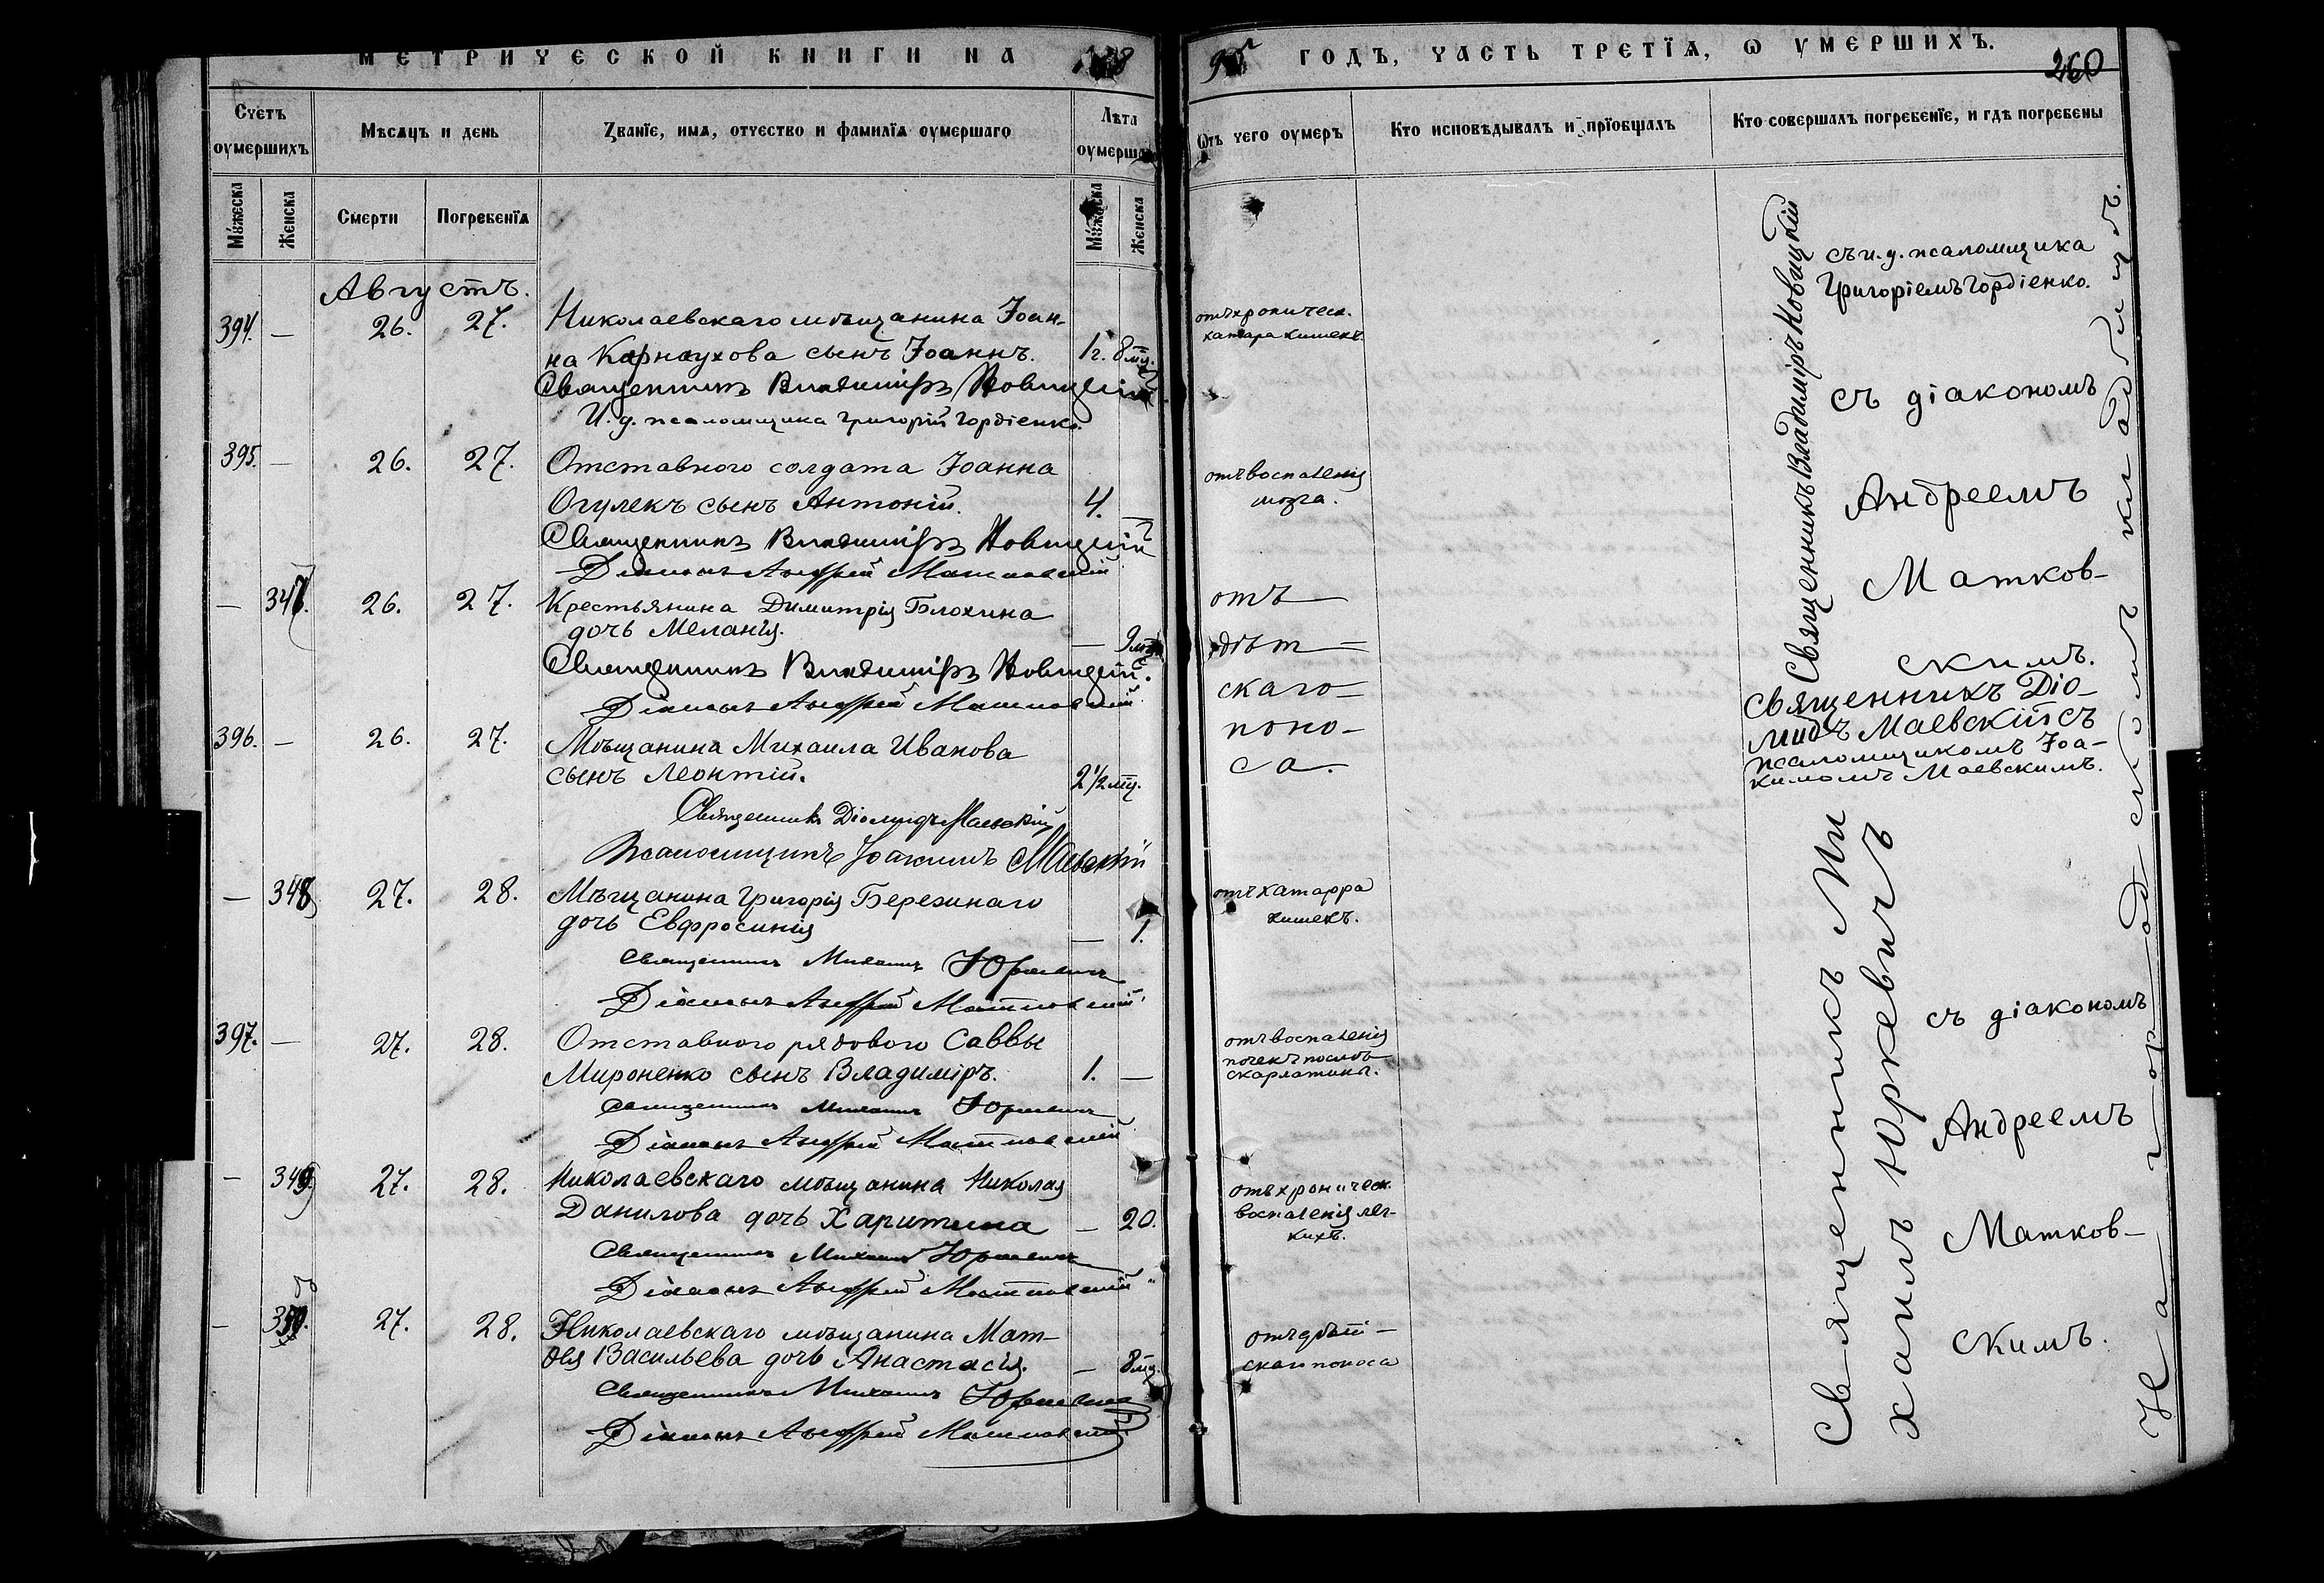 МЕТРИЧЕСКОЙ КНИГИ НА 188
95 ГОДЪ, ЧАСТЬ ТРЕТІЯ, Ѡ УМЕРШИХЪ.
260
Счетъ оумершихъ
Мѣсяцъ и день
Званїе, имя, отчество и фамилїя оумершаго
Лѣта оумершаго
Ѿъ чего оумеръ
Кто исповѣдывалъ и прїобщалъ
Кто совершалъ погребенїе, и гдѣ погребены
Мꙋжеска
Женска
Смерти
Погребенїя
Мꙋжеска
Женска
Августъ.
394. — 26. 27. Николаевскаго мѣщанина Іоан-
на Карнаухова сынъ Іоаннъ. 1г. 8 мц.
отъ хроническ.
катара кишекъ.
Священникъ Владиміръ Новицкій
И. д. псаломщика Григорій Гордіенко.
395. — 26. 27. Отставного солдата Іоанна
Огулекъ сынъ Антоній. 4. —
отъ воспаленія
мозга.
Священникъ Владиміръ Новицкій
Діаконъ Андрей Матковскій
— 347. 26. 27. Крестьянина Димитрія Блохина
дочь Меланія. — 9 мц.
отъ
дѣт-
скаго
поно-
са.
Священникъ Владиміръ Новицкій.
Діаконъ Андрей Матковскій
396. — 26. 27. Мѣщанина Михаила Иванова
сынъ Леонтій. 2½ мц.
Священникъ Діомидъ Маевскій
Псаломщикъ Іоакимъ Маевскій
— 348 27. 28. Мѣщанина Григорія Березинаго
дочь Евфросинія — 1.
отъ катарра
кишекъ.
Священникъ Михаилъ Юркевичъ
Діаконъ Андрей Матковскій
397. — 27. 28. Отставного рядового Саввы
Мироненко сынъ Владиміръ. 1. —
отъ воспаленія
почекъ послѣ
скарлатины.
Священникъ Михаилъ Юркевичъ
Діаконъ Андрей Матковскій
— 349 27. 28. Николаевскаго мѣщанина Николая
Данилова дочь Харитина — 20.
отъ хроническ.
воспаленія лег-
кихъ.
Священникъ Михаилъ Юркевичъ
Діаконъ Андрей Матковскій
— 350. 27. 28. Николаевскаго мѣщанина Мат-
ѳея Васильева дочь Анастасія. — 8 мц.
отъ дѣт-
скаго поноса
Священникъ Михаилъ Юркевичъ
Діаконъ Андрей Матковскій
Священникъ Владиміръ Новицкій
съ и. д. псаломщика
Григоріемъ Гордіенко.
съ діакономъ
Андреемъ
Матков-
скимъ.
Священникъ Діо-
мидъ Маевскій съ
псаломщикомъ Іоа-
кимомъ Маевскимъ.
Священникъ Ми
хаилъ Юркевичъ
съ діакономъ
Андреемъ
Матков-
скимъ.
На городскомъ кладбищѣ.